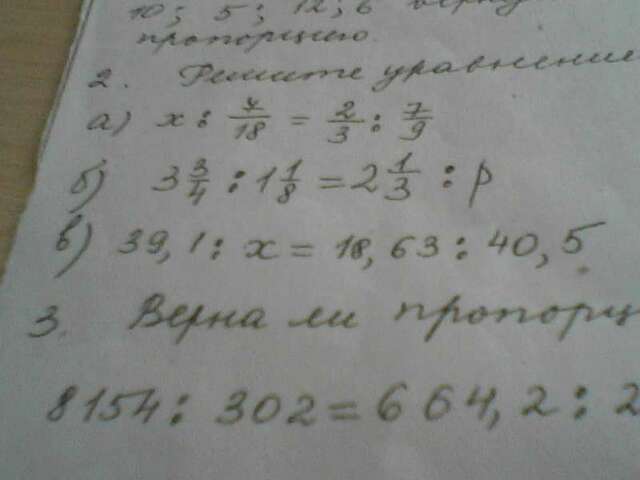 10; 5; 12; 6 верну
пропорцию.
2. Решите уравнение
а) x : 7/18 = 2/3 : 7/9
б) 3 3/4 : 1 1/8 = 2 1/3 : p
в) 39,1 : x = 18,63 : 40,5
3. Верна ли пропорц
8154 : 302 = 664,2 : 2